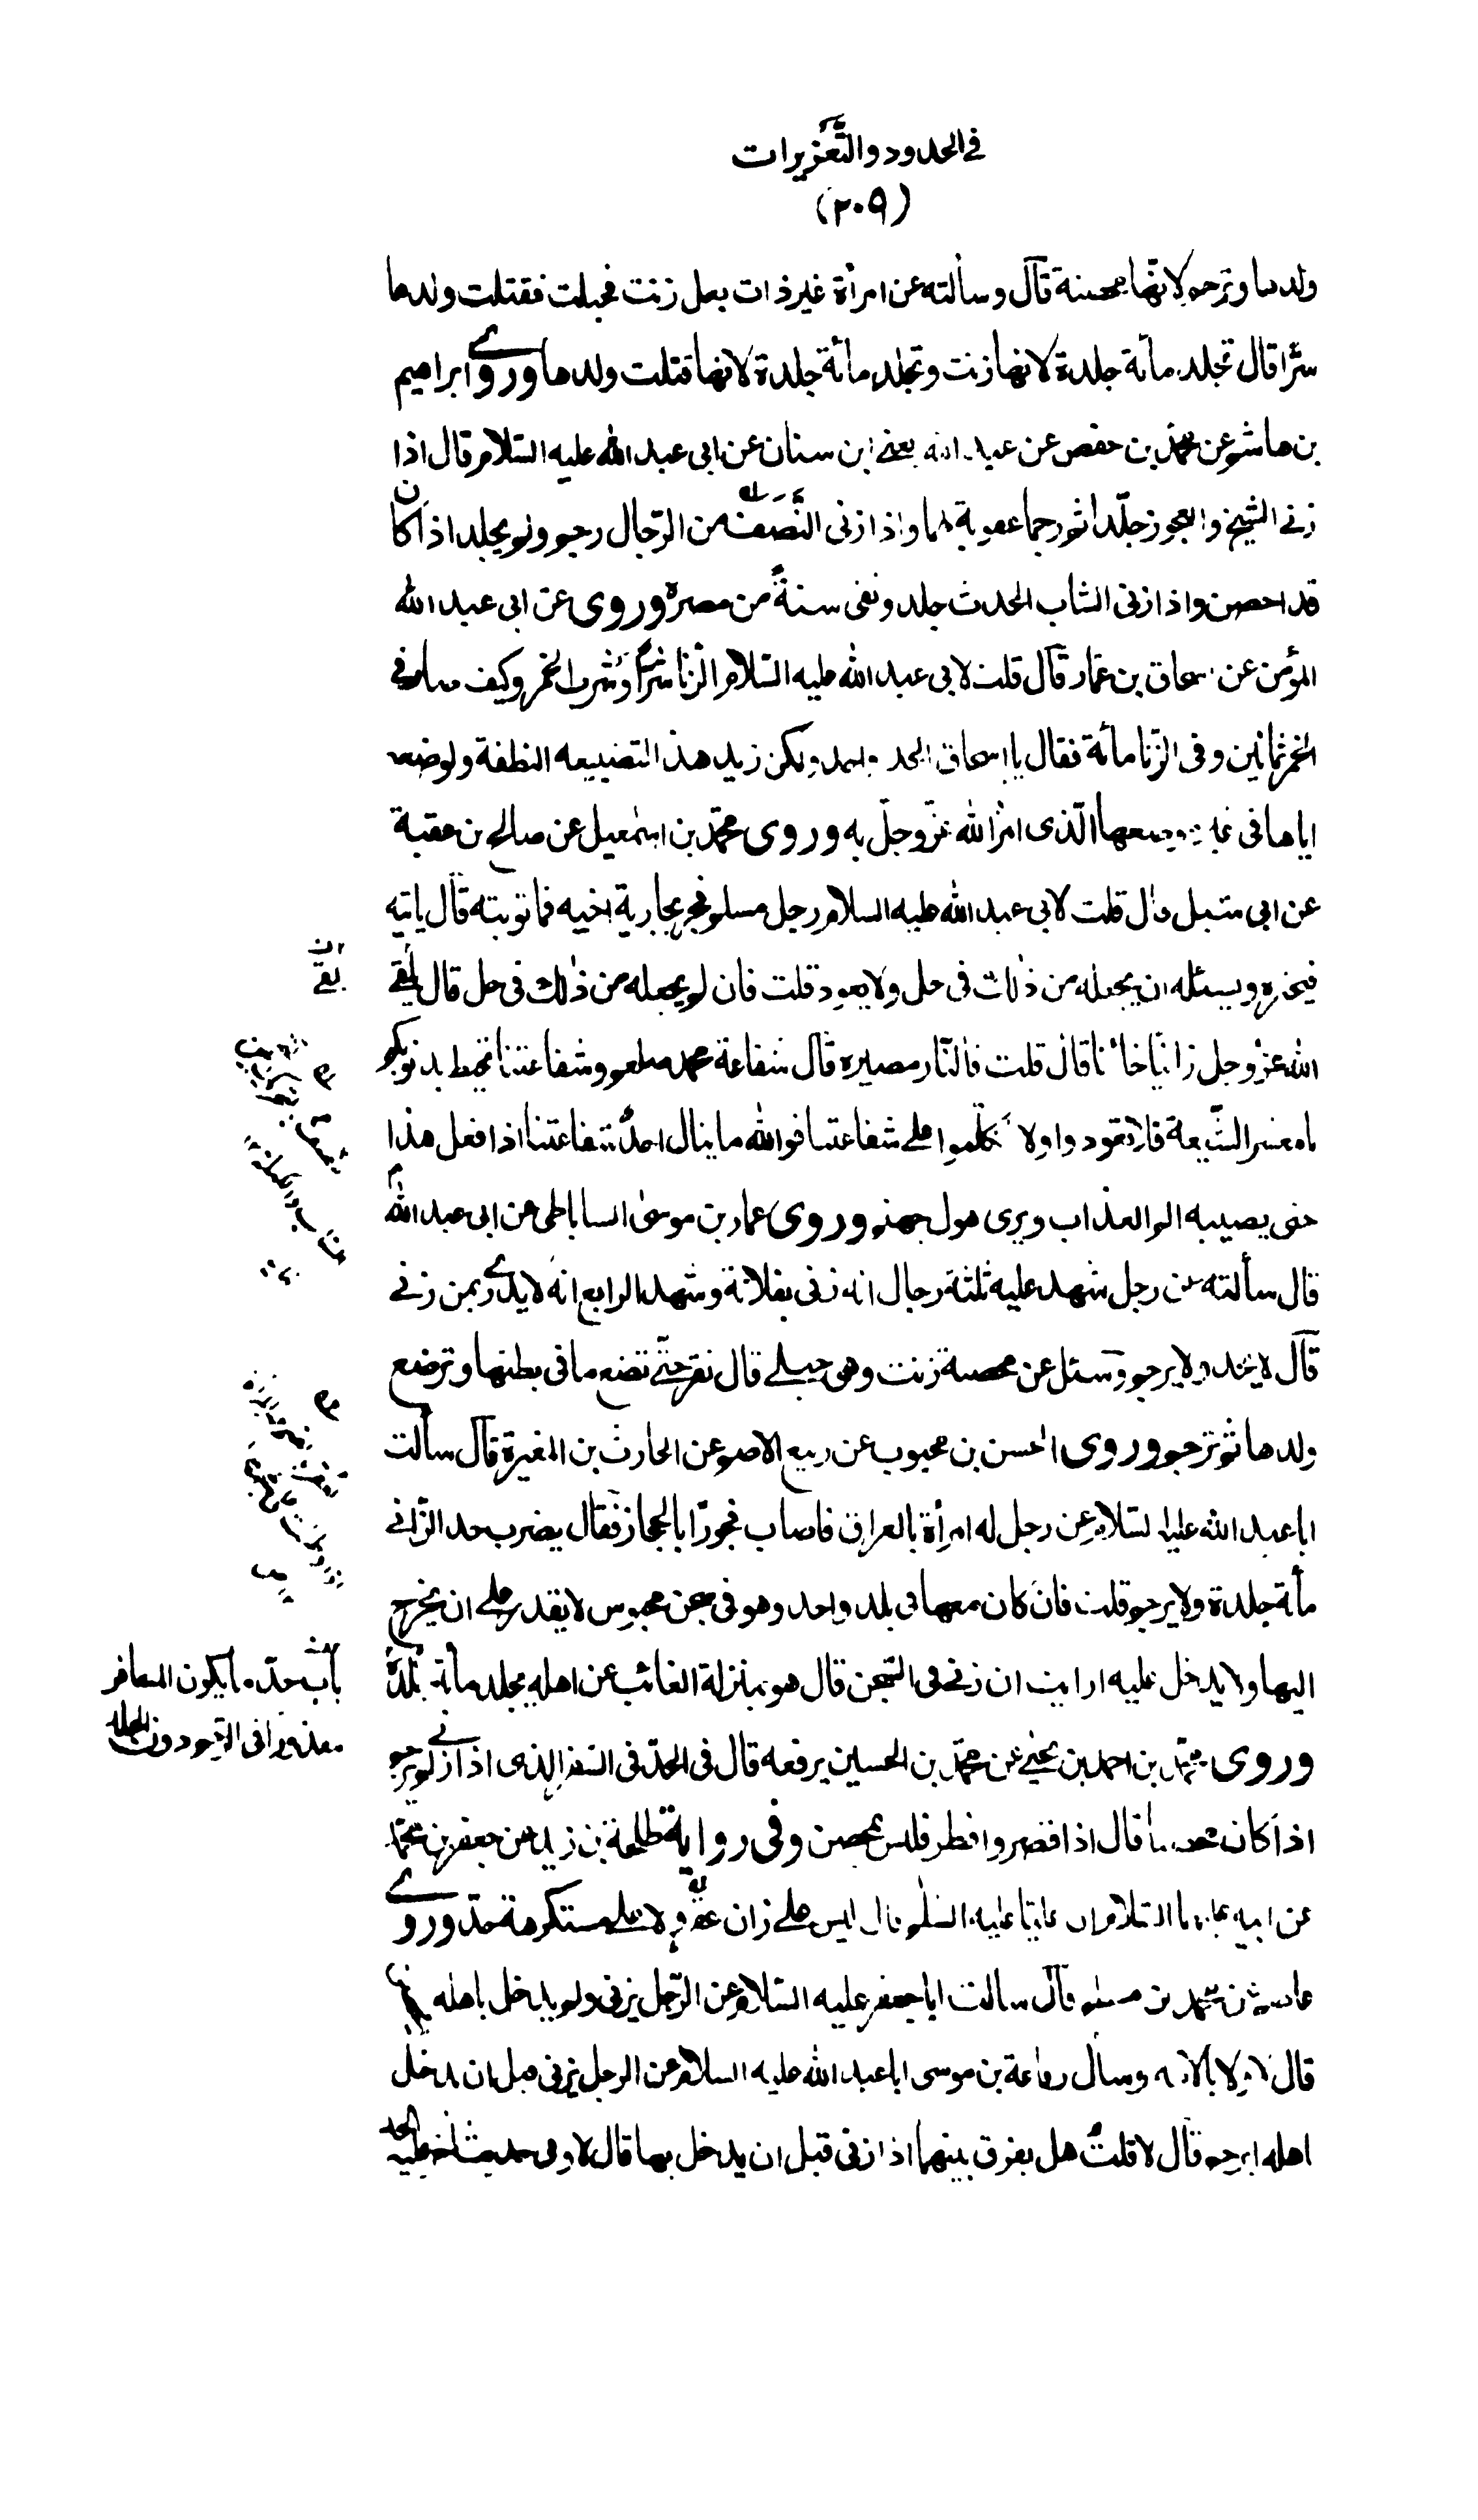 في الحدود والتعزيرات
(٢٠٩)
ولدها وترجم لانها محصنة قال وسألته عن امرأة غير ذات بعل زنت فحبلت فقتلت ولدها
سرا قال تجلد مائة جلدة لانها زنت وتجلد مائة جلدة لانها قتلت ولدها وروى ابراهيم
بن هاشم عن محمد بن حفص عن عبد الله يعنى ابن سنان عن ابى عبد الله عليه السلام قال اذا
زنى الشيخ والعجوز جلدا ثم رجما عقوبة لهما واذا زنى النصف من الرجال رجم ولم يجلد اذا كان
قد احصن واذا زنى الشاب الحدث جلد ونفى سنة من مصره وروى عن ابى عبد الله
المؤمن عن اسحاق بن عمار قال قلت لابى عبد الله عليه السلام الزنا شر او شرب الخمر وكيف صار في
الخمر ثمانين وفى الزنا مائة فقال يا اسحاق الحد واحد ولكن زيد هذا لتضييعه النطفة ولوضعه
اياها فى غير موضعها الذى امر الله عز وجل به وروى محمد بن اسمعيل عن صالح بن عقبة
عن ابى شبل قال قلت لابى عبد الله عليه السلام رجل مسلم فجر بجارية اخيه فما توبته قال ياتيه
فيخبره ويسئله ان يجعله من ذلك فى حل ولا يعود قلت فان لم يجعله من ذلك فى حل قال يلقى
الله عز وجل زانيا خائنا قال قلت فالنار مصيره قال شفاعة محمد صلعم وشفاعتنا تحيط بذنوبكم
يا معشر الشيعة فلا تعودوا ولا تتكلموا على شفاعتنا فوالله ما ينال احد شفاعتنا اذا فعل هذا
حتى يصيبه الم العذاب ويرى هول جهنم وروى عمار بن موسى الساباطى عن ابى عبد الله ع
قال سألته عن رجل شهد عليه ثلثة رجال انه زنى بفلانة وشهد الرابع انه لا يدرى بمن زنى
قال لا يحد ولا يرجم وسئل عن محصنة زنت وهى حبلى قال تقر حتى تضع ما فى بطنها وترضع
ولدها ثم ترجم وروى الحسن بن محبوب عن ربيع الاصم عن الحارث بن المغيرة قال سألت
ابا عبد الله عليه السلام عن رجل له امرأة بالعراق فاصاب فجورا بالحجاز فقال يضرب حد الزانى
مأة جلدة ولا يرجم قلت فان كان معها فى بلد واحد وهو فى سجن محبوس لا يقدر على ان يخرج
اليها ولا يدخل عليه ارايت ان زنى فى السجن قال هو بمنزلة الغائب عن اهله يجلد مأة جلدة
باب حد ما يكون المسافر
معذورا فى الرجم دون الجلد
وروى محمد بن احمد بن يحيى عن محمد بن الحسين يرفعه قال فى الحد فى السفر الذى اذا زنى لم يرجم
اذا كان محصنا قال اذا قصر وافطر فليس بمحصن وفى رواية طلحة بن زيد عن جعفر بن محمد
عن ابيه عليهما السلام ان عليا عليه السلم قال ليس على زان عقر ولا على مستكرهة حد وروى
عن محمد بن مسلم قال سالت ابا جعفر عليه السلام عن الرجل يزنى ولم يدخل باهله
قال لا ولا بالامة وسأل رفاعة بن موسى ابا عبد الله عليه السلام عن الرجل يزنى قبل ان يدخل
اهله ايرجم قال لا قلت هل يفرق بينهما اذا زنى قبل ان يدخل بها قال لا وفى حديث